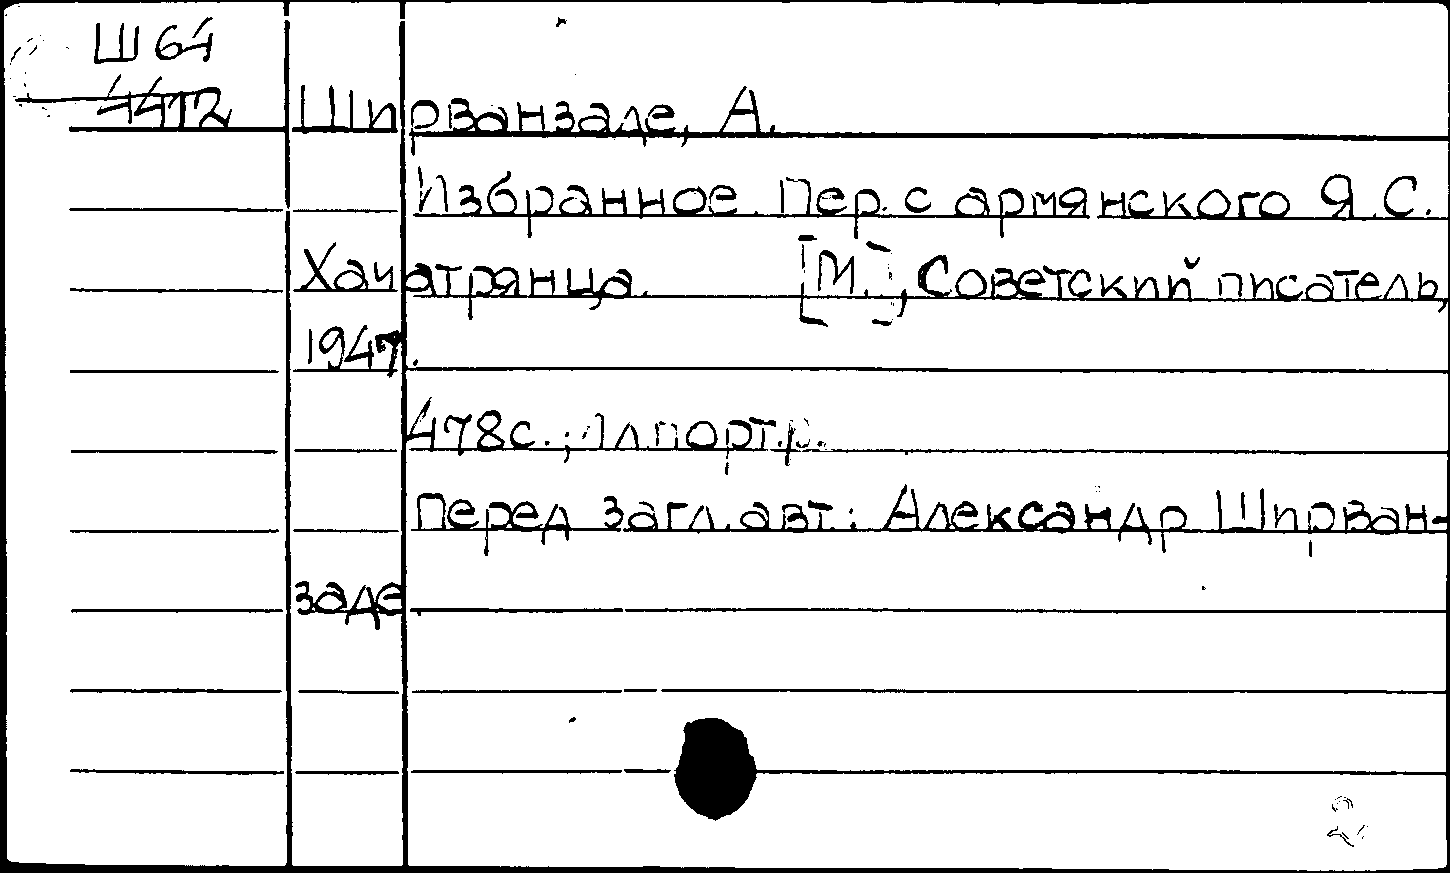 Ш 64
4412 Ширванзаде, А.
Избранное. Пер. с армянского Я.С.
Хачатрянца. [М.], Советский писатель,
1947.
478с.; 1л портр.
Перед загл. авт.: Александр Ширван-
заде.